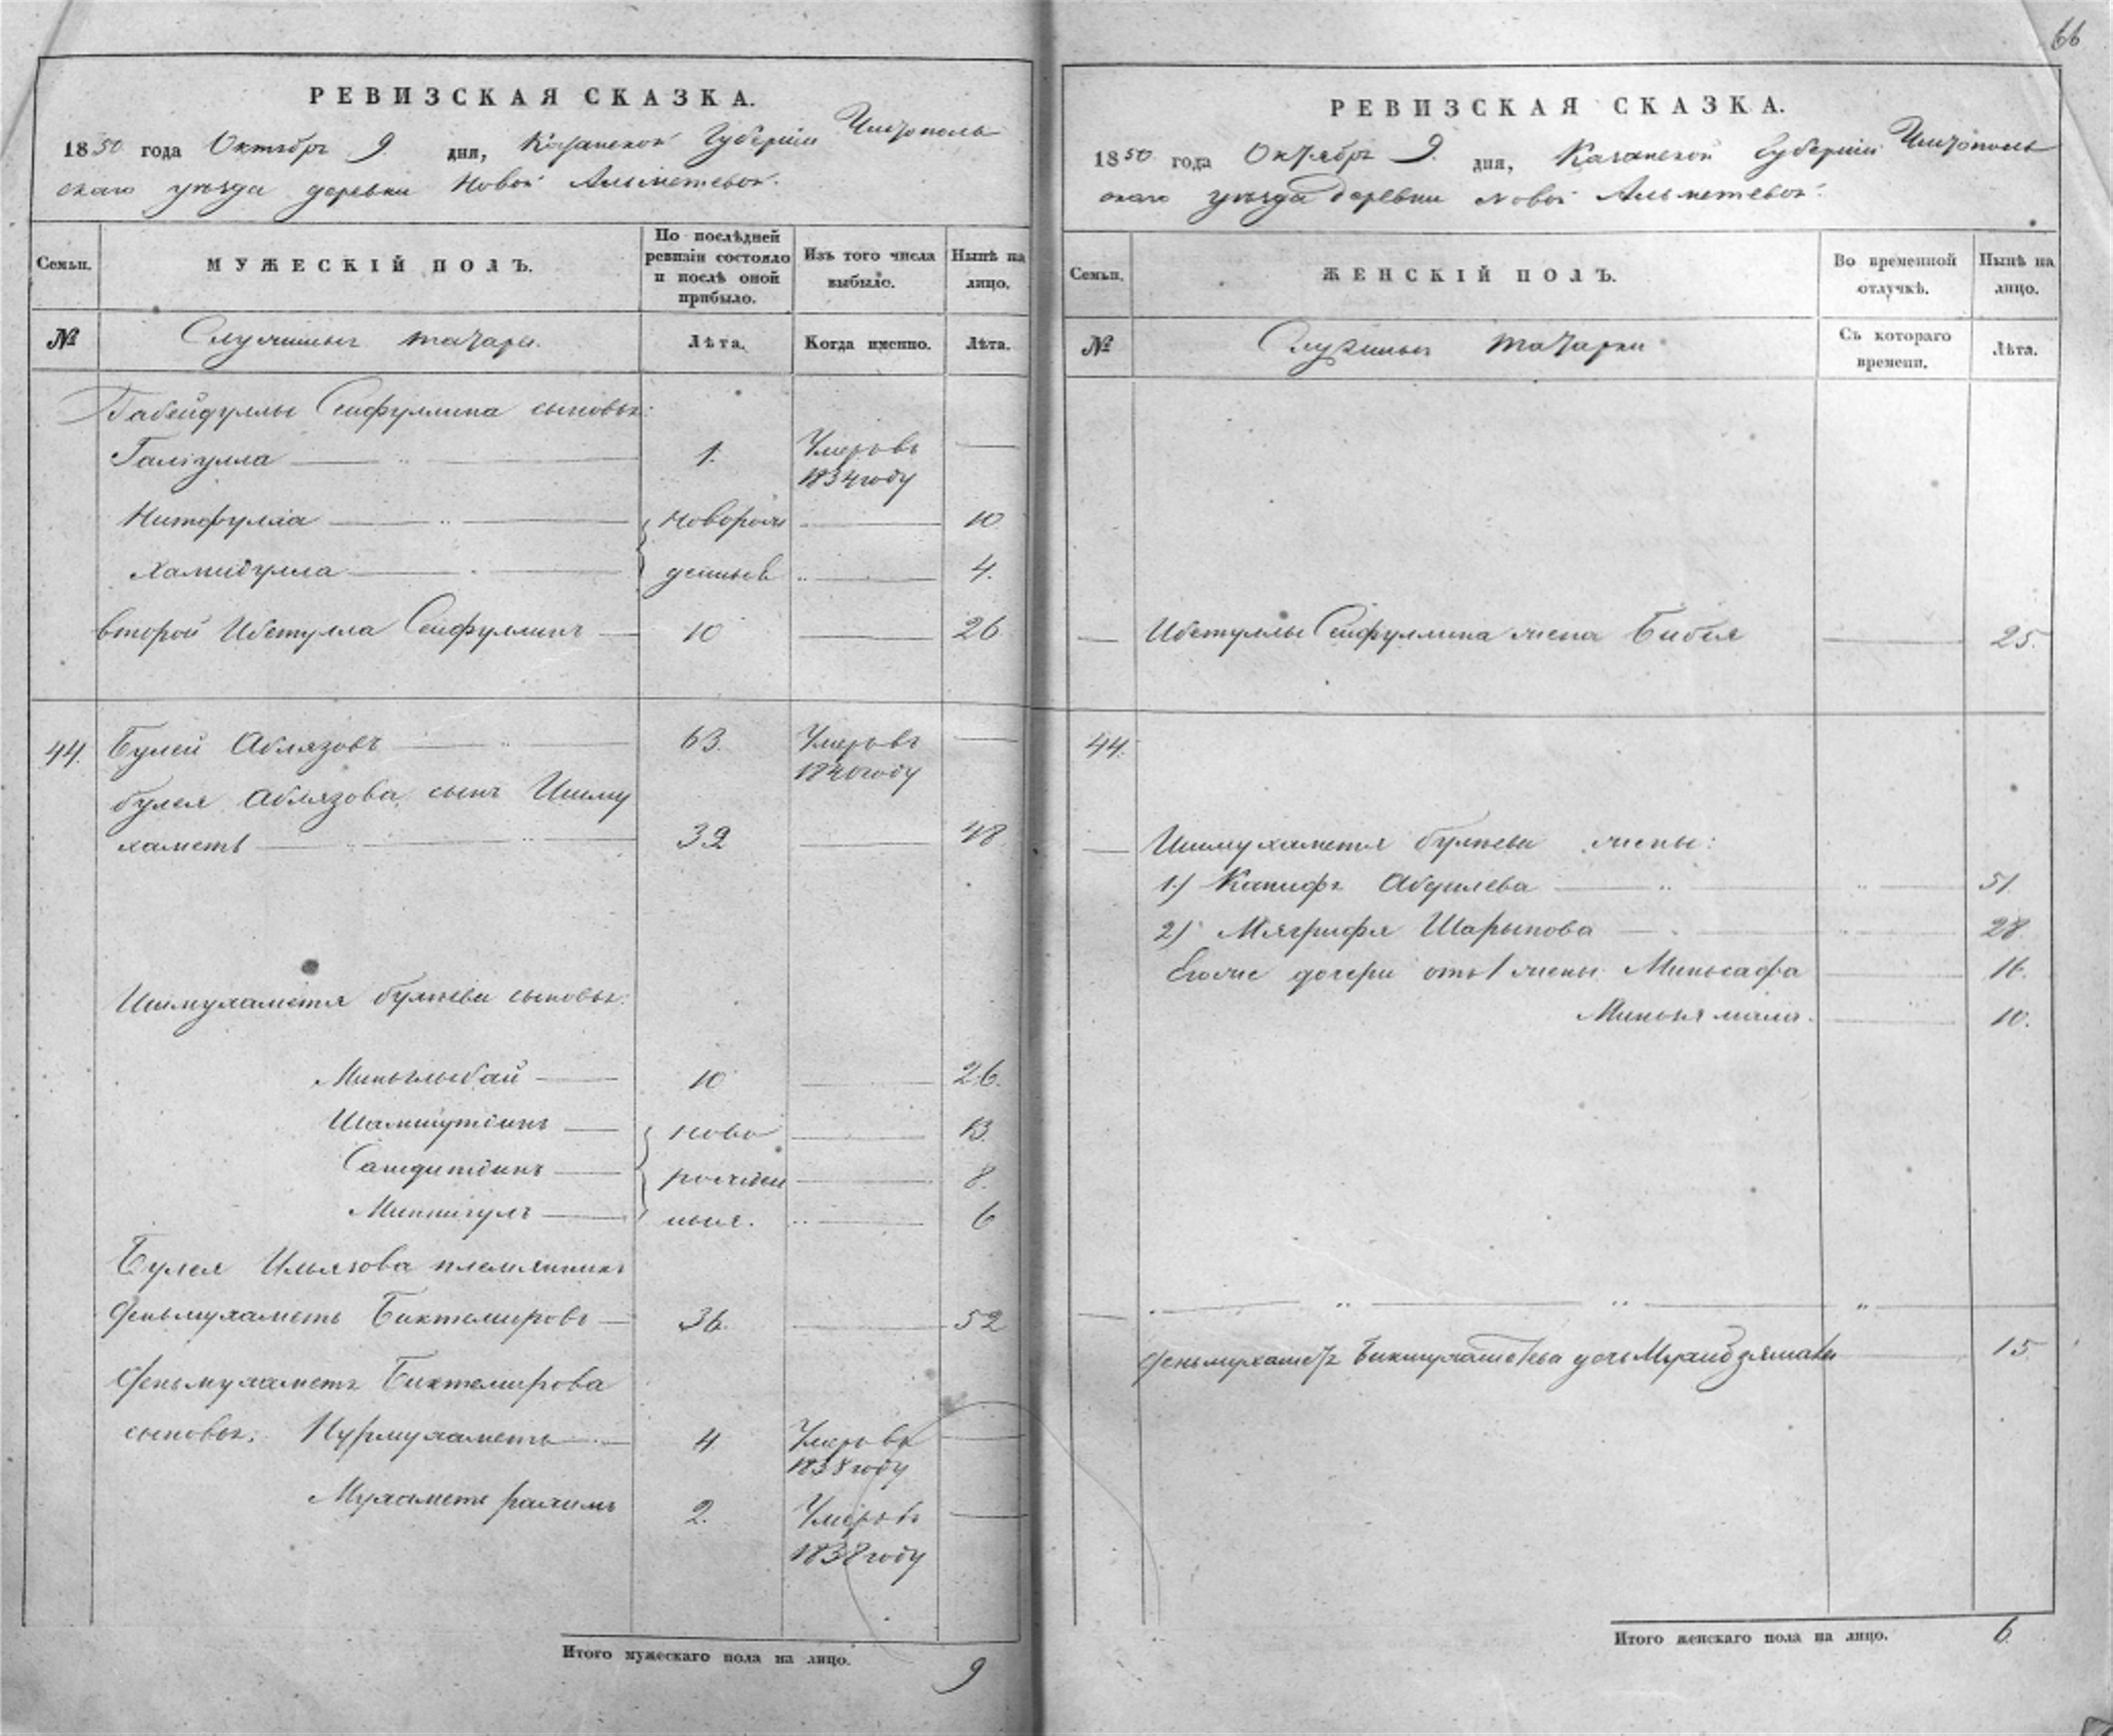 66
РЕВИЗСКАЯ СКАЗКА.
1850 года Октября 9 дня, Казанской Губернiи Чистополь
скаго уѣзда деревни Новой Альметевой.
Семьи.
МУЖЕСКIЙ ПОЛЪ.
По послѣдней
ревизiи состояло
и послѣ оной
прибыло.
Изъ того числа
выбыло.
Нынѣ на
лицо.
№
Служилые татары.
Лѣта.
Когда именно.
Лѣта.
Габейдуллы Сейфуллина сыновья:
Галiулла 1. Умеръ въ
1834 году
Нитфулла новорож 10
Хамидулла денные 4.
второй Ибетулла Сейфуллинъ 10 26
44. Булей Аблязовъ 63. Умеръ въ
1840 году
булея Аблязова сынъ Ишму
хаметъ 32 48
Ишмухаметя булѣева сыновья:
Миньлыбай 10 26.
Шамшутдинъ ново 13
Саидитдинъ рожден 8.
Миннигулъ ныя. 6
Булея Ильязова племянникъ
Феньмухаметъ Биктемировъ 36. 52
Феньмухаметъ Биктемирова
сыновья: Нурмухаметъ 4 Умеръ въ
1838 году
Мухаметь рахимъ 2. Умеръ въ
1838 году
Итого мужескаго пола на лицо. 9
РЕВИЗСКАЯ СКАЗКА.
1850 года Октября 9. дня, Казанской Губернiи Чистополь
скаго уѣзда деревни Новой Альметевой.
Семьи.
ЖЕНСКIЙ ПОЛЪ.
Во временной
отлучкѣ.
Нынѣ на
лицо.
№
Служилыя татарки
Съ котораго
времени.
Лѣта.
Ибетуллы Сейфуллина жена Бибея 25.
44.
Ишмухаметя булѣева жены:
1.) Капифя Абдулева 51.
2) Мягрифя Шарыпова 28.
Егоже дочери отъ 1 жены Миньсафа 16.
Миньзямала. 10.
Феньмухаметъ дочь 15
Итого женскаго пола на лицо. 6